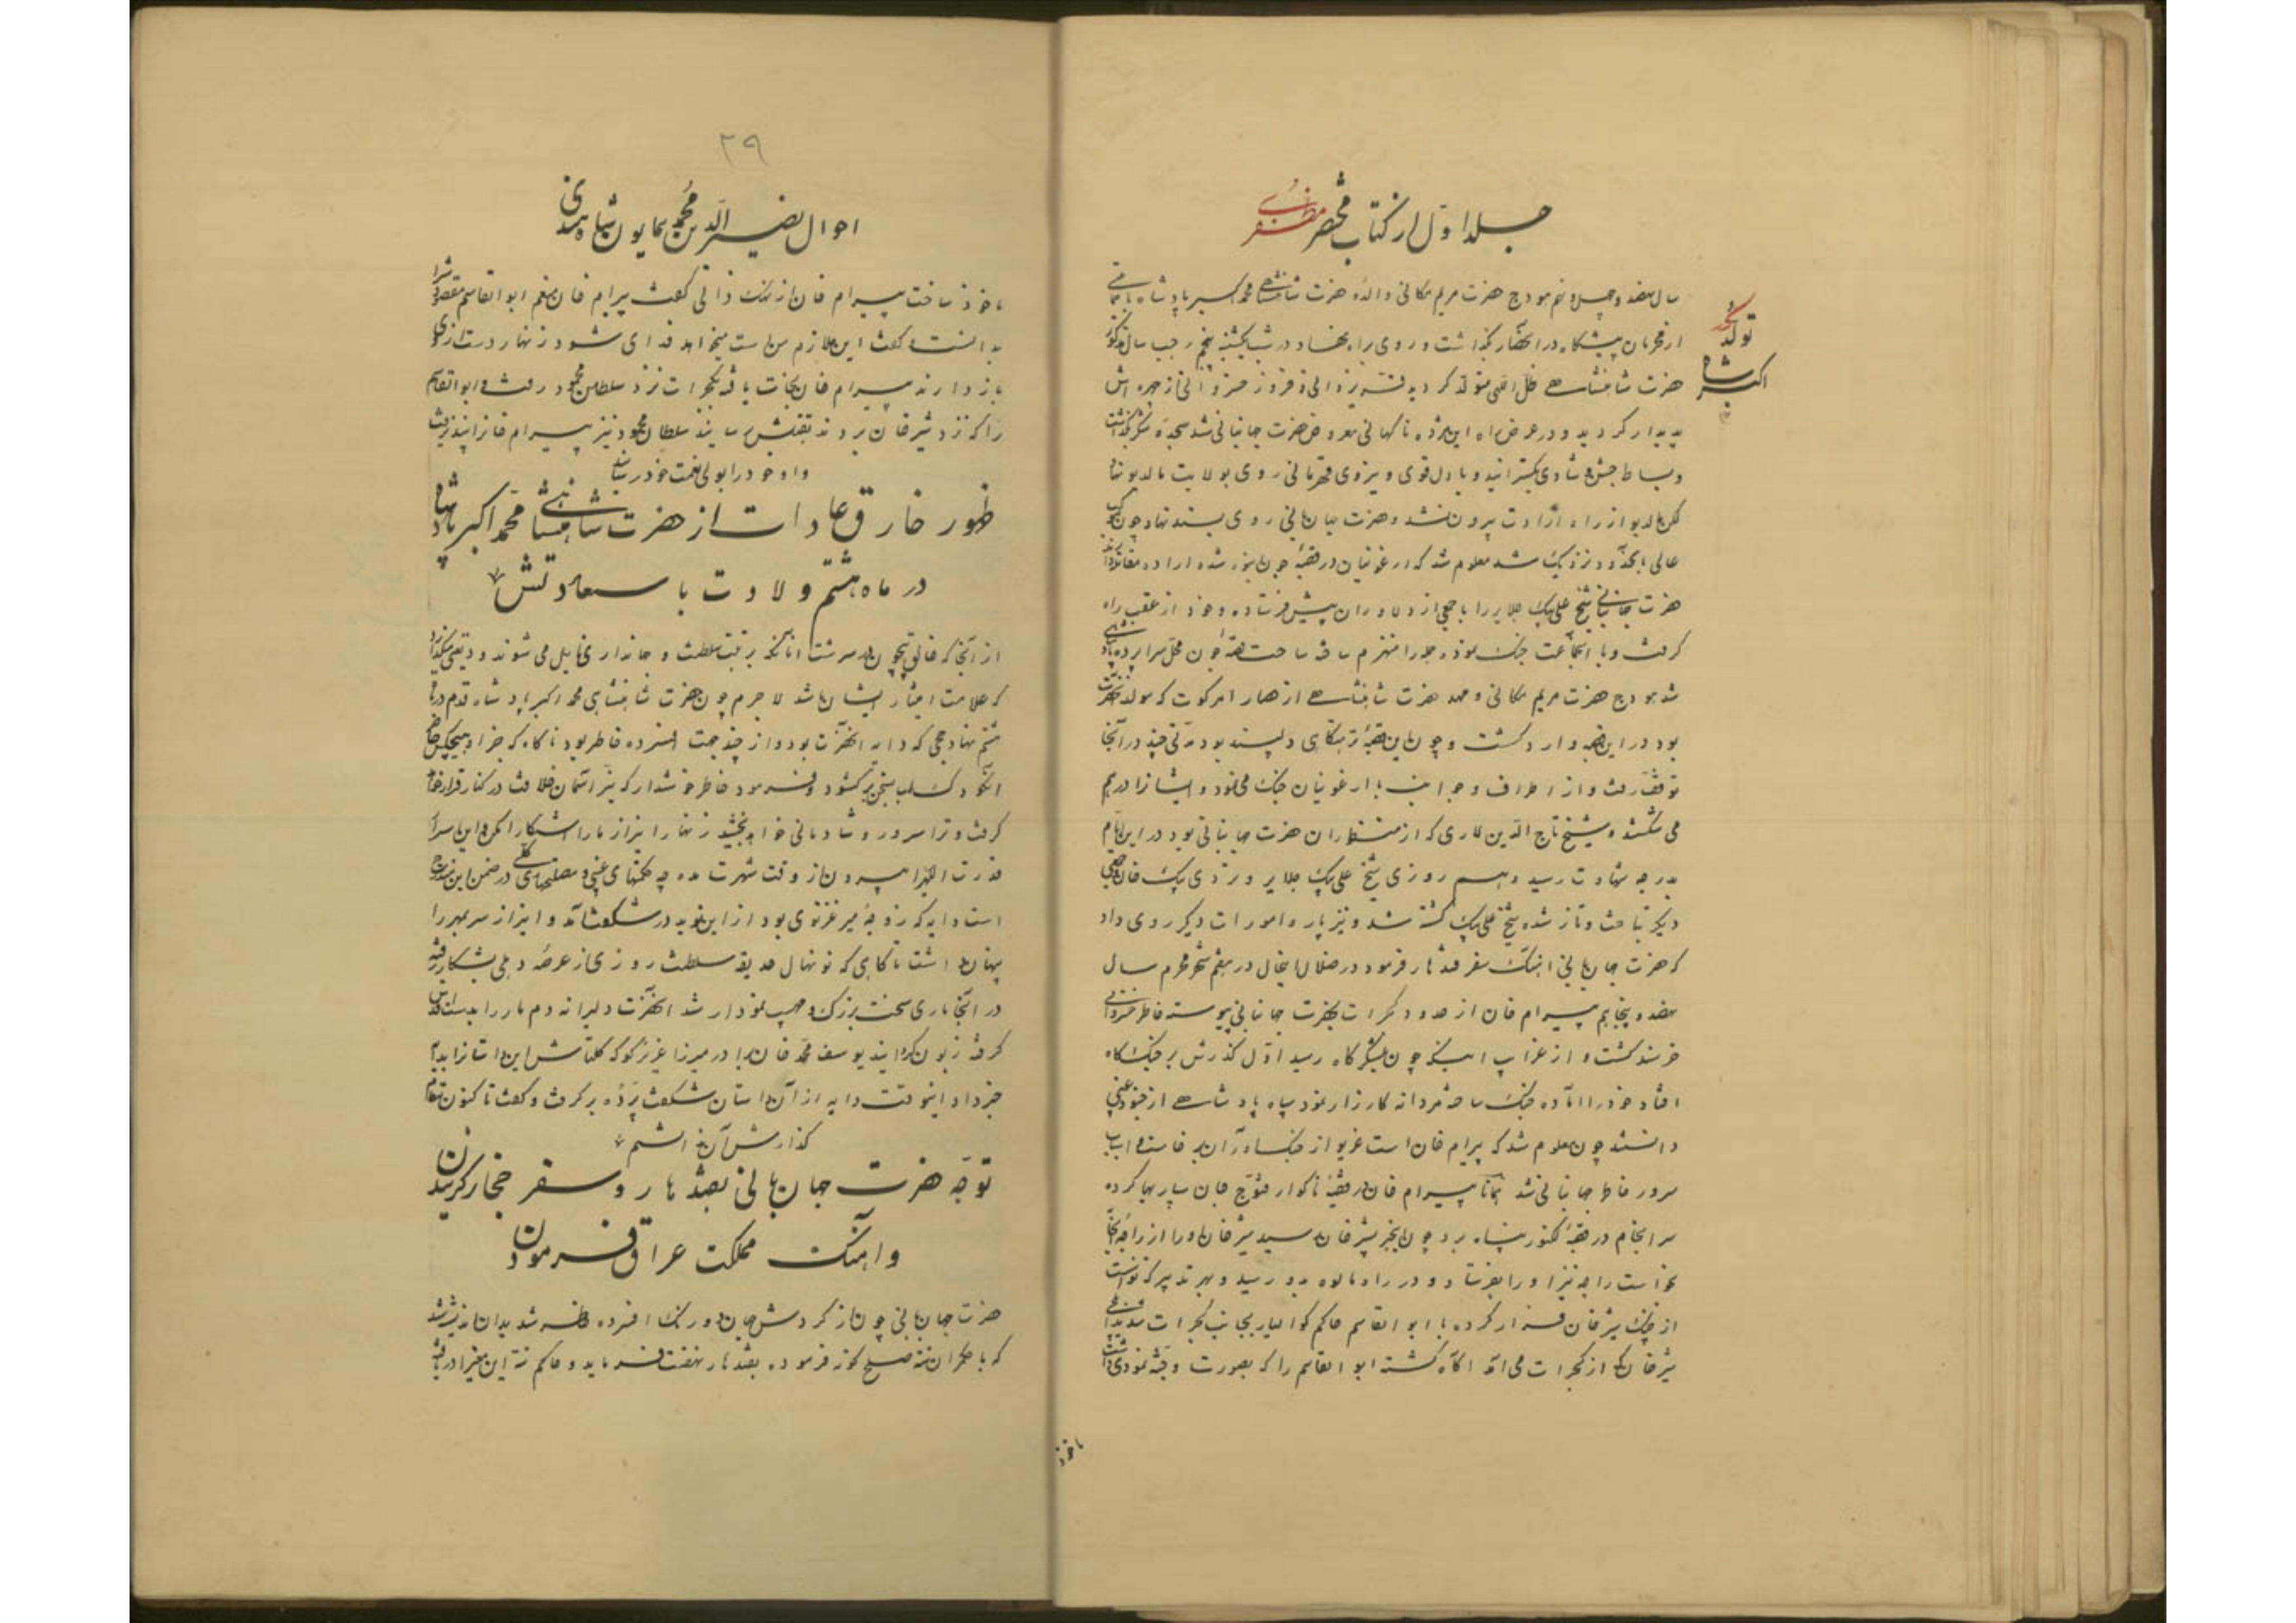 جلد اول از کتاب مختصر مظفری
تولد محمد
اکبر شاه
سال نهصد و چهل و نهم هودج حضرت مریم مکانی والدهٔ حضرت شاهنشاهی محمد اکبر پادشاه با
از محرمان پیشگاه در انحصار گذاشت و روی براه نهاد در شب یکشنبه پنجم رجب سال مذکور
حضرت شاهنشاهی ظل اللهی متولد گردیده فره یزدانی و فروز خسروانی از چهره اش
پدیدار گردید و در عرض راه این مژده ناگهانی معروض حضرت جهانبانی شد سجدهٔ شکر گذاشت
و بساط جشن و شادی بگسترانید و با دل قوی و نیروی قهرمانی روی بولایت مالدیو نهاد
لکن مالدیو از راه ارادت بیرون نشد و حضرت جهانبانی روی بسند نهاد چون
عالی بحدود نزدیک شد معلوم شد که ارغونیان در قصبهٔ جون انبوه شده اراده مقاتله دارند
حضرت جهانبانی شیخ علی بیک جلایر را با جمعی از دلاوران پیش فرستاده و خود از عقب راه
گرفت و با آنجماعت جنگ نموده جمله را منهزم ساخت ساحت قصبهٔ جون محل سراپرده پادشاهی
شد هودج حضرت مریم مکانی و مهد حضرت شاهنشاهی از حصار امرکوت که مولد آنحضرت
بود در این قصبه وارد گشت و چون این قصبهٔ نزهتگاهی دلپسند بود مدتی چند در آنجا
توقف رفت و از اطراف و جوانب با ارغونیان جنگ می نمود و ایشانرا درهم
می شکستند و شیخ تاج الدین لاری که از منتظران حضرت جهانبانی بود در این ایام
بدرجه شهادت رسید و هم روزی شیخ علی بیک جلایر و تردی بیک خان و جمعی
دیگر بتاخت و تاز شده شیخ علی بیک کشته شد و نیز پاره امورات دیگر روی داد
که حضرت جهانبانی آهنگ سفر قندهار فرمود در خلال اینحال در هفتم شهر محرم سال
نهصد و پنجاهم بیرام خان از حدود گجرات بحضرت جهانبانی پیوسته خاطر خسروانی
خرسند گشت و از غرایب اینکه چون بلشکرگاه رسید اول گذرش بر جنگگاه
افتاد خود را آماده جنگ ساخته مردانه کارزار نمود سپاه پادشاهی از جنود غیبی
دانستند چون معلوم شد که بیرام خان است غریو از جنگ آوران برخاست و اسباب
سرور خاطر جهانبانی شد همانا بیرام خان در قضیهٔ ناگوار قنوج جان سپاریها کرده
سرانجام در قصبهٔ لکنور پناه برد چون اینخبر بشیرخان رسید شیرخان او را از راجهٔ آنجا
بخواست راجه نیز او را بفرستاد و در راه مالوه بدو رسید و بهر تدبیر که توانست
از چنگ شیرخان فرار کرده با ابو القاسم حاکم گوالیار بجانب گجرات
شیرخان که از گجرات می آمد آگاه گشته ابو القاسم را که بصورت وجیه نمودی داشت
ماخوذ
۲۹
احوال نصیر الدین محمد همایون شاه هندی
ماخوذ ساخت بیرام خان از نیک ذاتی گفت بیرام خان منم ابو القاسم مقصود را
بدانست و گفت این ملازم من است میخواهد فدای من شود زنهار دست از وی
باز دارند بیرام خان نجات یافته بگجرات نزد سلطان محمود رفت و ابو القاسم
را که نزد شیرخان بردند بقتلش رسانیدند سلطان محمود نیز بیرام خانرا پذیرفت
و او خود را بولی نعمت خود رسانید
ظهور خارق عادات از حضرت شاهنشاهی محمد اکبر پادشاه
در ماه هشتم ولادت با سعادتش
از آنجا که خالق بیچون در سرشت آنانکه برتبت سلطنت و جهانداری نایل می شوند ودیعتی میگذارد
که علامت امتیاز ایشان باشد لاجرم چون حضرت شاهنشاهی محمد اکبر پادشاه قدم در ماه
هشتم نهاد جیجی که دایه آنحضرت بود و از چند جهت افسرده خاطر بود ناگاه که جز او هیچکس حاضر
آنکودک لب بسخن برگشود و فرمود خاطر خوش دار که نیر آسمان خلافت در کنار تو قرار خواهد
گرفت و ترا سرور و شادمانی خواهد بخشید زنهار این راز ما را آشکارا مکن و این اسرار
قدرت اللهی را بیرون از وقت شهرت مده چه حکمتهای غیبی و مصلحتهای کلی در ضمن این مندرج
است دایه که زوجهٔ میر غزنوی بود از این نوید در شگفت آمد و این راز سر بمهر را
پنهان داشت تا گاهی که نونهال حدیقه سلطنت روزی از عرصهٔ دهلی بشکار رفته
در آنجا ماری سخت بزرگ و مهیب نمودار شد آنحضرت دلیرانه دم مار را بدست اقدس
گرفته زبون گردانید یوسف محمد خان برادر میرزا عزیز کوکلتاش این داستانرا بدایه
خبر داد اینوقت دایه از آن داستان شگفت پرده برگرفت و گفت تا کنون مقام
گذارش آن نداشتم
توجه حضرت جهانبانی بقندهار و سفر حجاز گزیدن
و آهنگ مملکت عراق فرمودن
حضرت جهانبانی چون از گردش جهان دورنگ افسرده خاطر شد بدان اندیشه شد
که با حکمران تته صلح گونه فرموده بقندهار نهضت فرماید و حاکم تته این معنی را دریافته